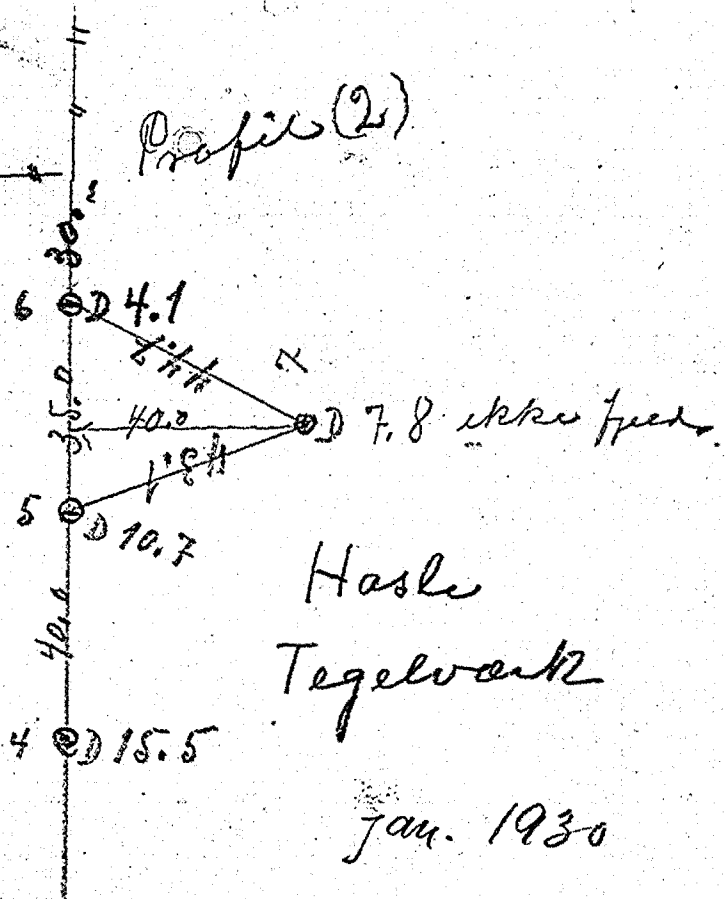 Profil (2)
30.
6 D 4.1
44.7
35.0
40.0
D 7.8 ikke fjeld.
43.1
5 D 10.7
Hasle
40.0
Tegelværk
4 D 15.5
jan. 1930